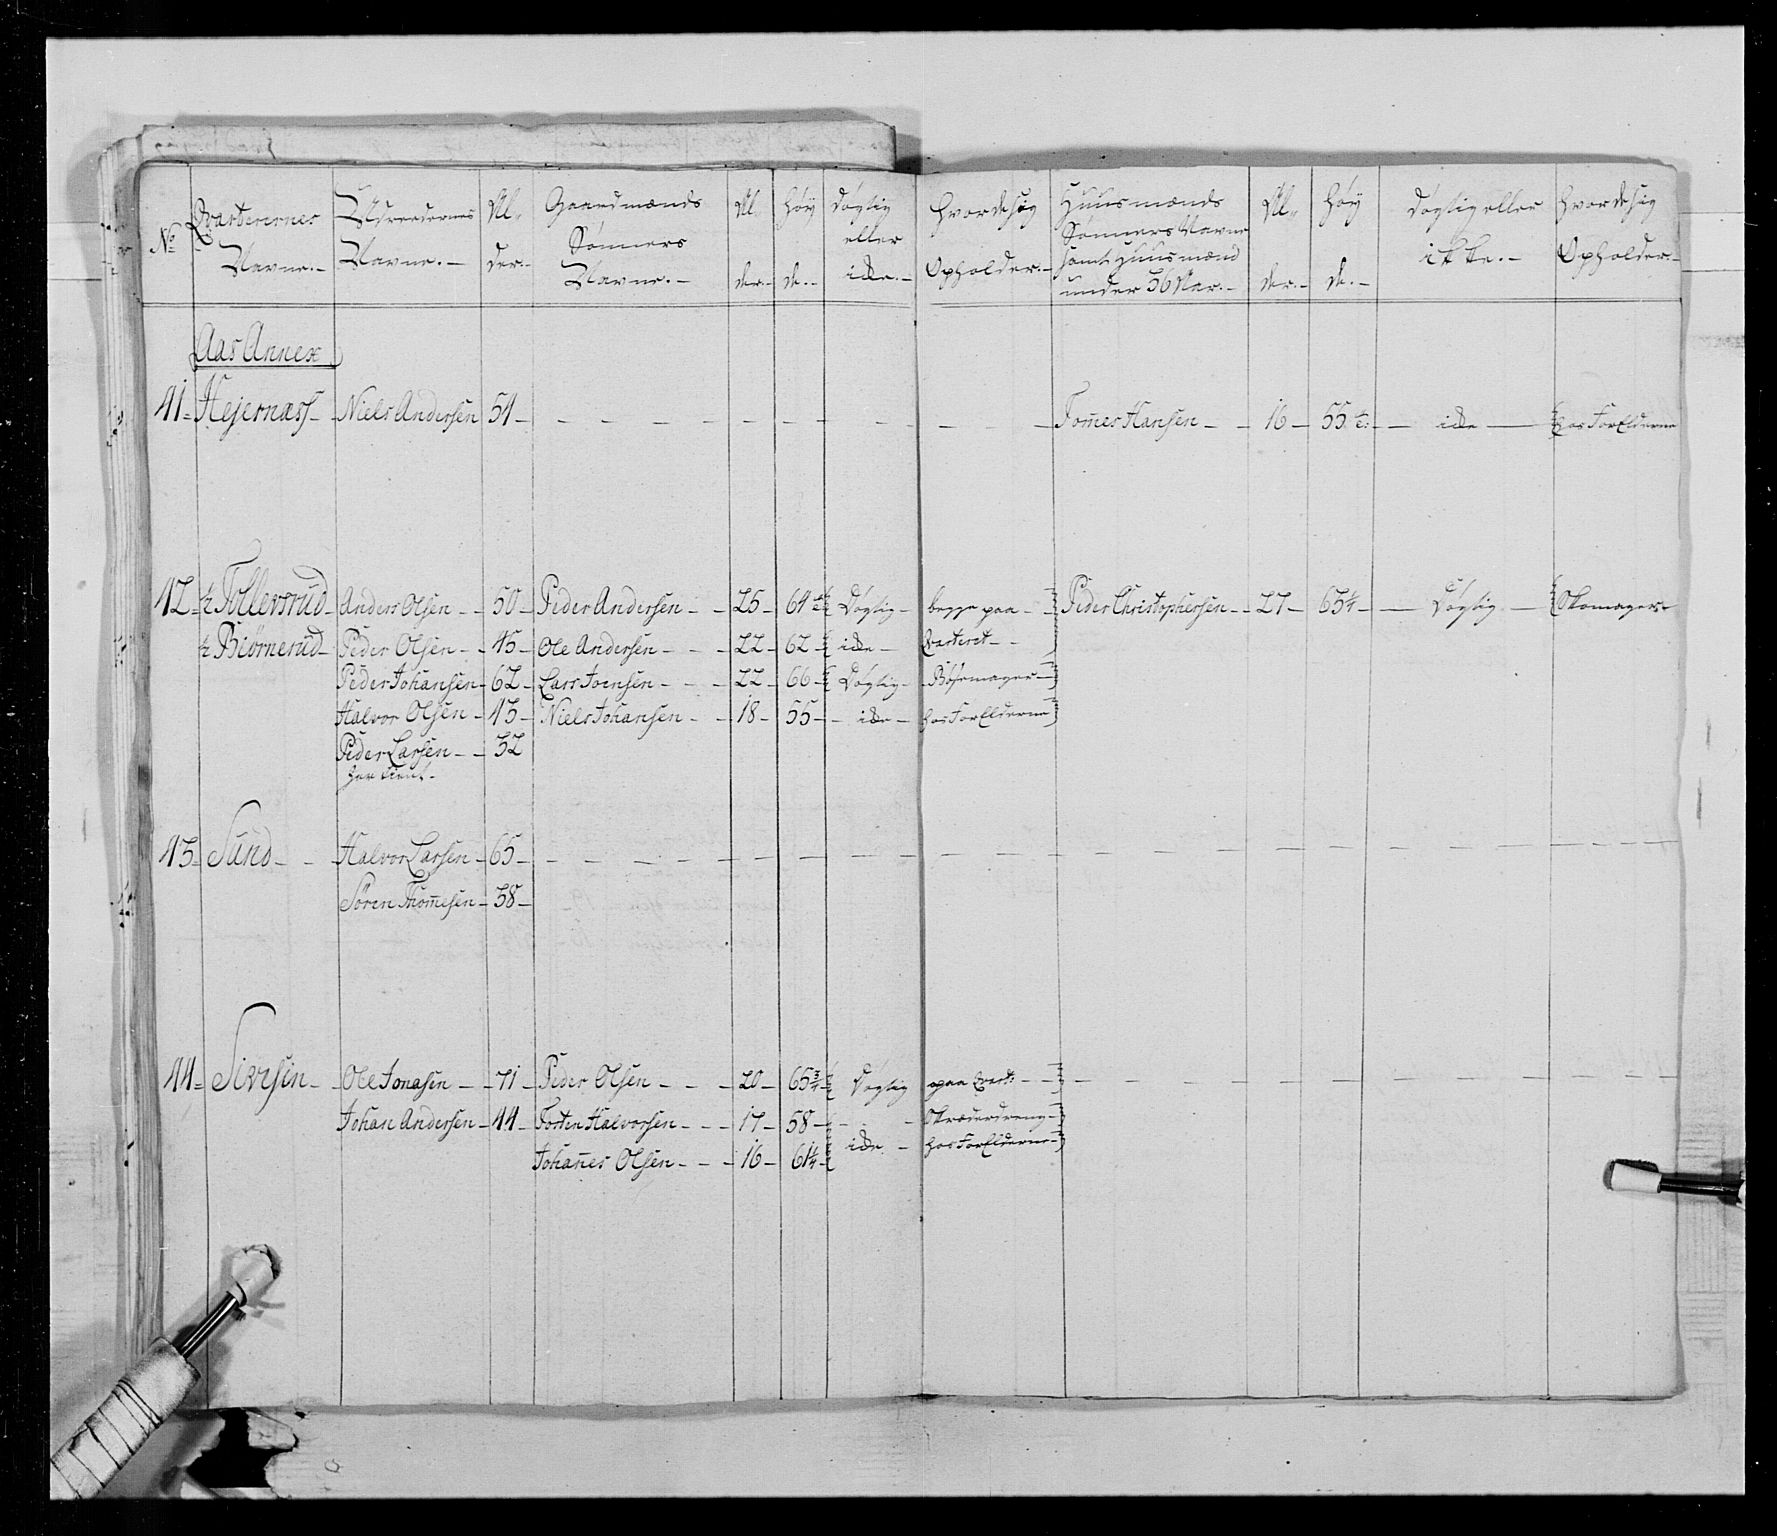 No
Qvarterernes
Navne.-
Udreedernes
Navne.-
Al-
der.-
Gaardmænds
Sønners
Navne.-
Al-
der.-
Høy
de.-
Døgtig
eller
ikke.-
Hvor de sig
Opholder.-
Huusmænds
Sønners Navne
samt Huusmænd
under 36 Aar.-
Al-
der.-
Høy
de.-
Døgtig eller
ikke.-
Hvor de sig
Opholder.-
Aas Annex
41- Hejernæss- Niels Andersen 54- Tomes Hansen - - 16 - 55 - ikke - hos Forælderne
42- ½ Tollevsrud- Anders Olsen - - 50- Peder Andersen - - 25- 64 - Døgtig - begge paa - Peder Christophersen - - 27- 65¼- - Døgtig - Skomager-
½ Biørnerud- Peder Olsen - - 45- Ole Andersen - - - 22- 62- ikke - Qvarteret - -
Peder Johansen- 62- Lars Joensen - - - 22- 66- Døgtig - Bøsemager-
Halvor Olsen - 43- Niels Johansen - - 18- 55- - ikke - hos Forælderne
Peder Larsen - - 32
har tient.
43- Sund - - Halvor Larsen - 65-
Søren Thomesen - 38-
44- Sivesin - - Ole Jonasen - - 71- Peder Olsen - - - 20- 65¾- Døgtig paa Qvart: - -
Johan Andersen - 44- Tosten Halvorsen - - - 17- 58- - - Skræderdreng-
Johanes Olsen - - - 16- 61¼- ikke - hos Forælderne-